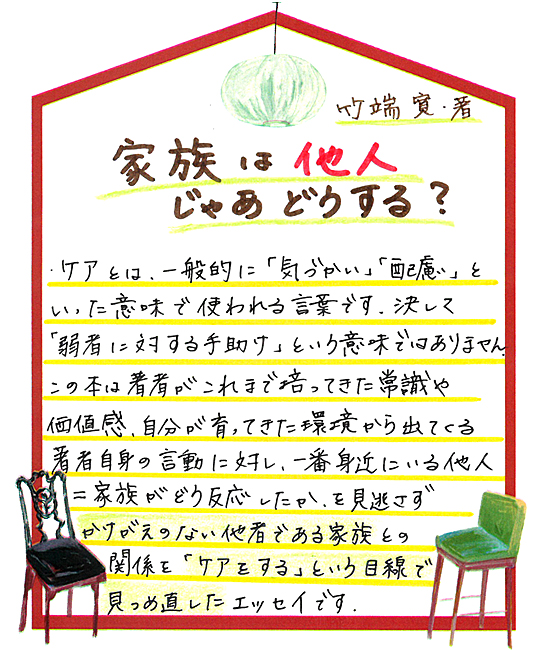 竹端 寛・著
家族は他人
じゃあどうする?
・ケアとは、一般的に「気づかい」「配慮」と
いった意味で使われる言葉です。決して
「弱者に対する手助け」という意味ではありません。
この本は著者がこれまで培ってきた常識や
価値感、自分が育ってきた環境から出てくる
著者自身の言動に対し、一番身近にいる他人
=家族がどう反応したか、を見逃さず
かけがえのない他者である家族との
関係を「ケアをする」という目線で
見つめ直したエッセイです。